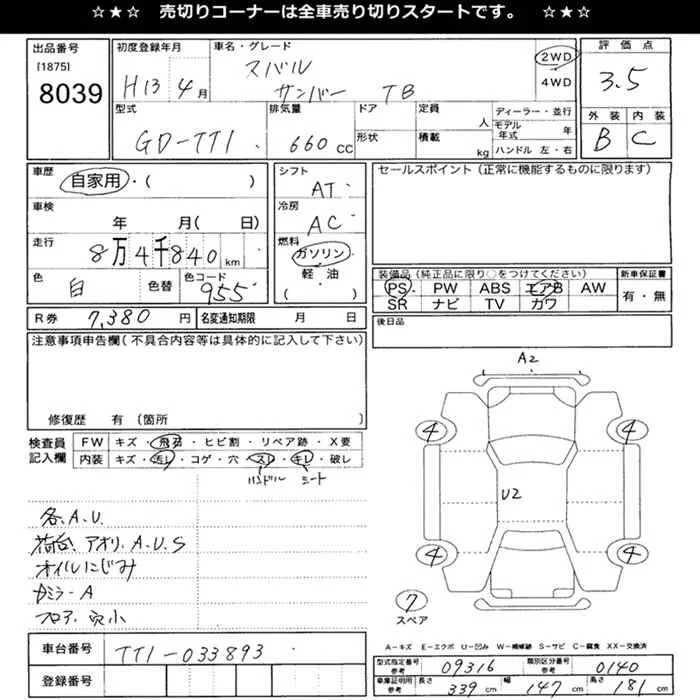 ☆★☆ 売切りコーナーは全車売り切りスタートです。 ☆★☆
出品番号 初度登録年月 車名・グレード 評価点
[1875] スバル 2WD
8039 H13年 4月 サンバー TB 4WD 3.5
型式 排気量 ドア 定員 人 ディーラー・並行 外装 内装
モデル年式 年
GD-TT1 660cc 形状 積載 kg ハンドル 左・右 B C
車歴 自家用・( ) シフト AT セールスポイント(正常に機能するものに限ります)
車検 年 月(日) 冷房 AC
走行 8万4千840km 燃料 ガソリン・軽油
( )
色 白 色替 色コード 955 装備品(純正品に限り○をつけてください) 新車保証書
PS PW ABS エアB AW 有・無
SR ナビ TV カワ
R券 7,380円 名変通知期限 月 日 後日品
注意事項申告欄(不具合内容等は具体的に記入して下さい)
修復歴 有(箇所 )
検査員記入欄 FW キズ・飛石・ヒビ割・リペア跡・X要
内装 キズ・汚レ・コゲ・穴・スレ・キレ・破レ
ハンドル シート
各A.U.
荷台、アオリ、A.U.S
オイルにじみ
Dミラ-A
フロア 穴小
A2
4 4
U2
4 4
7
スペア
A-キズ E-エクボ U-凹み W-補修跡 S-サビ C-腐食 XX-交換済
車台番号 TT1-033893
登録番号
型式指定番号 参考 09316 類別区分番号 参考 0140
車庫証明用 参考 長さ 339cm 幅 147cm 高さ 181cm